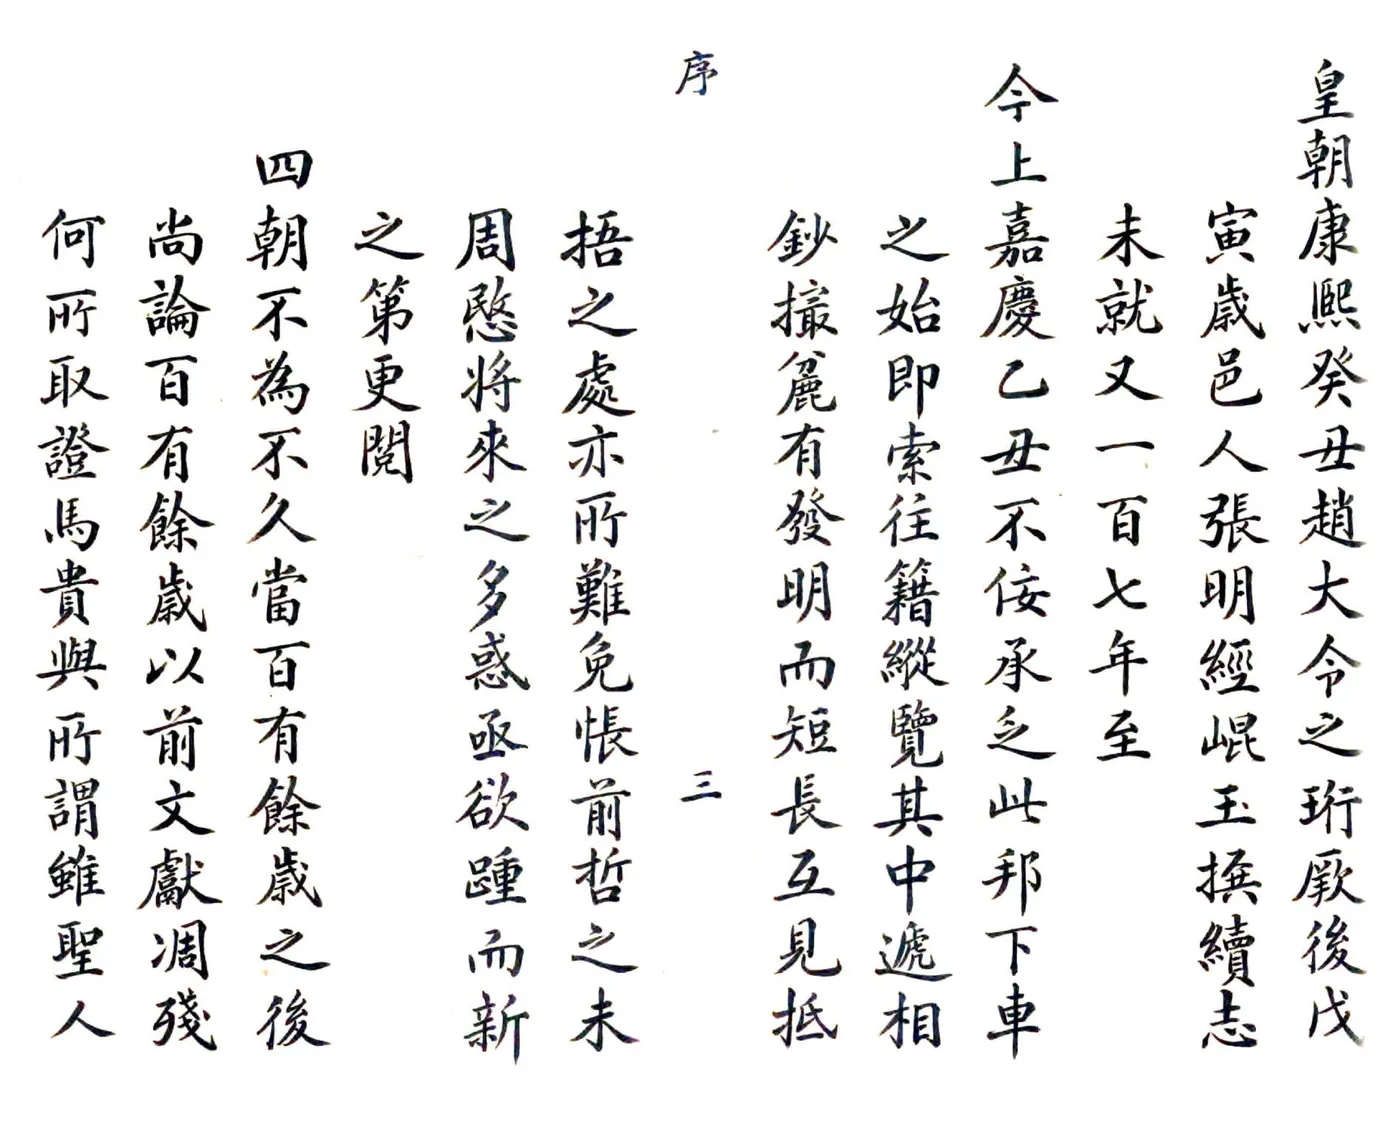 皇朝康熙癸丑趙大令之珩厥後戊
寅歲邑人張明經崐玉撰續志
未就又一百七年至
今上嘉慶乙丑不佞承乏此邦下車
之始即索往籍縱覽其中遞相
鈔撮麄有發明而短長互見抵
序
三
捂之處亦所難免悵前哲之未
周愍將來之多惑亟欲踵而新
之第更閱
四朝不為不久當百有餘歲之後
尚論百有餘歲以前文獻凋殘
何所取證馬貴與所謂雖聖人